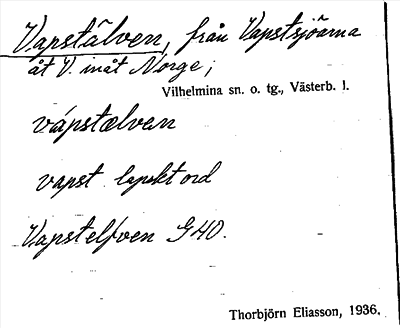 Vapstälven, från Vapstsjöarna
åt V. inåt Norge;
Vilhelmina sn. o. tg., Västerb. l.
vápstælven
vapst lapskt ord
Vapstelfven G40.
Thorbjörn Eliasson, 1936.